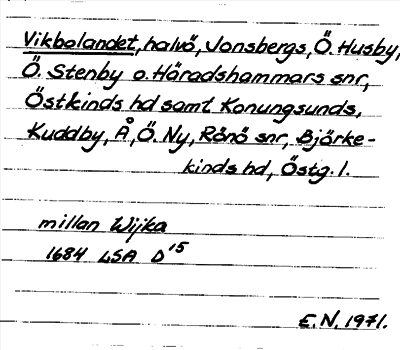 Vikbolandet, halvö, Jonsbergs, Ö. Husby,
Ö. Stenby o. Häradshammars snr,
Östkinds hd samt Konungsunds,
Kuddby, Å, Ö. Ny, Rönö snr, Björke-
kinds hd, Östg. l.
millan Wijka
1684 LSA D15
E.N. 1971.